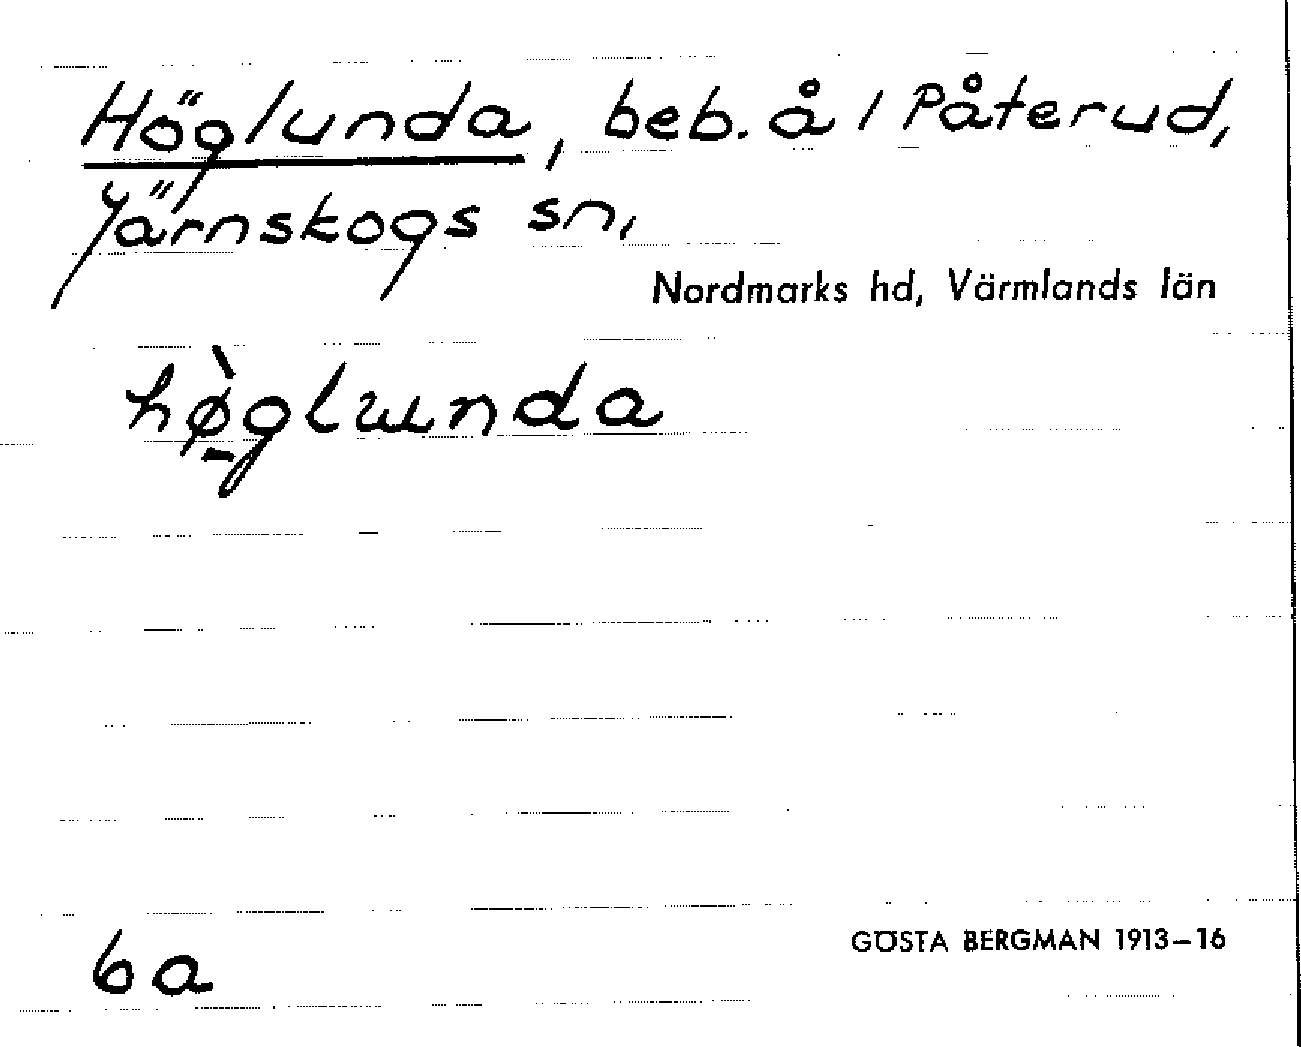 Höglunda, beb. å 1 Påterud,
Järnskogs sn,
Nordmarks hd, Värmlands län
hø̠̀glunda
6a
GÖSTA BERGMAN 1913–16